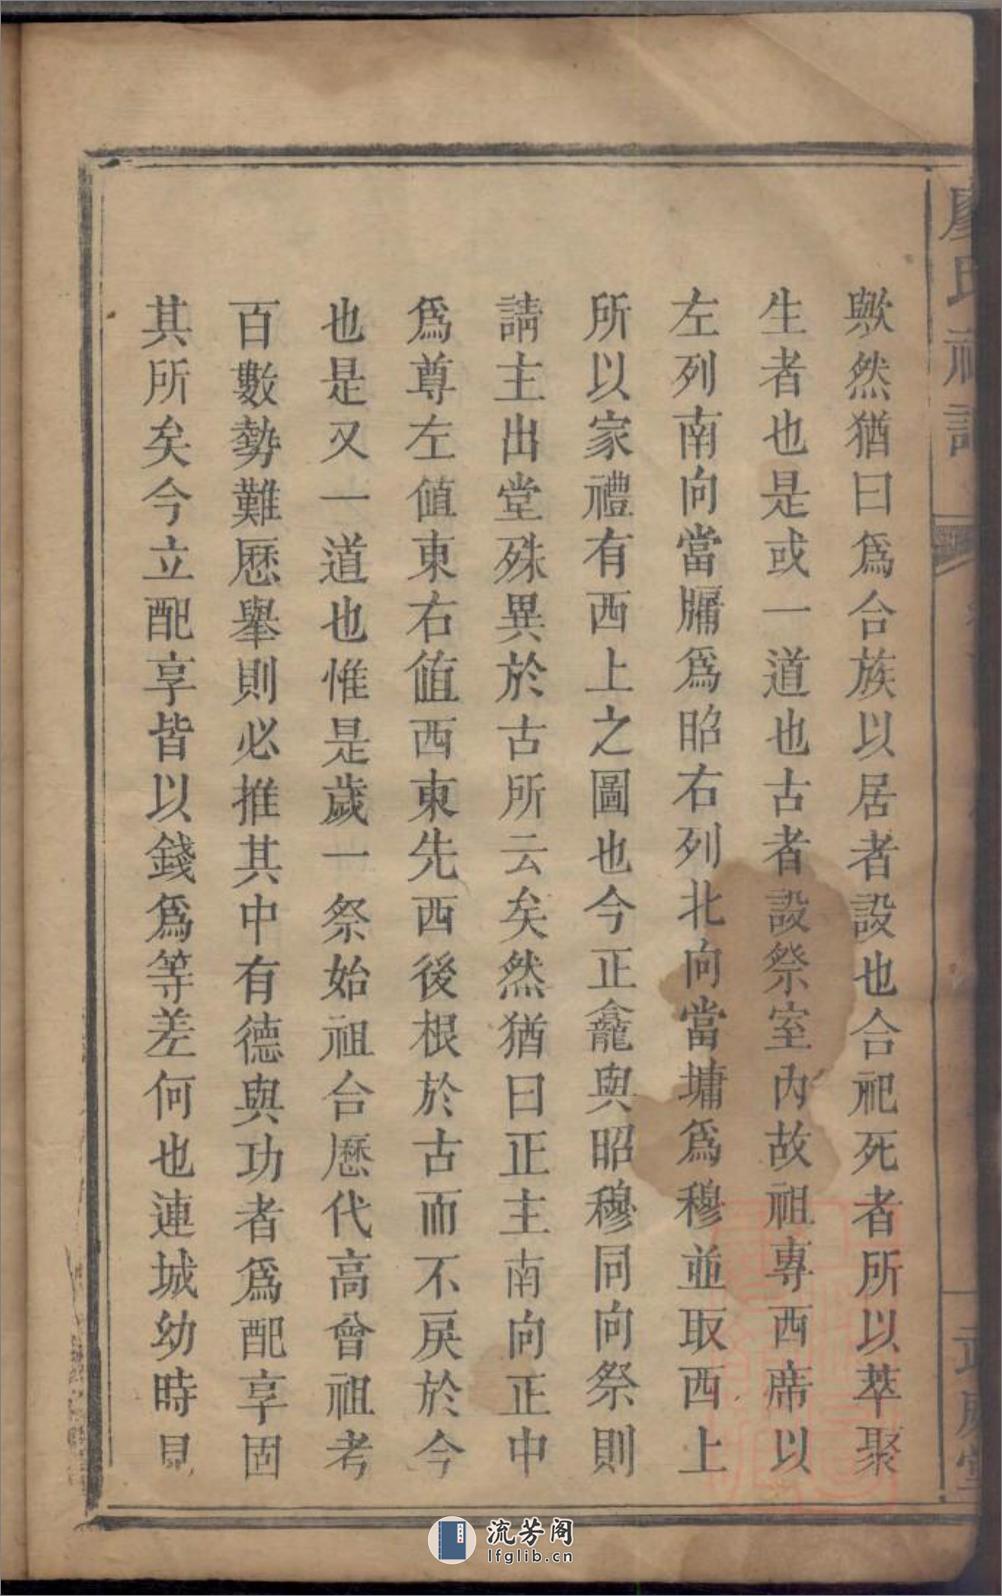 歟然猶曰爲合族以居者設也合祀死者所以萃聚
生者也是或一道也古者設祭室內故祖專西席以
左列南向當牖爲昭右列北向當墉爲穆並取西上
所以家禮有西上之圖也今正龕與昭穆同向祭則
請主出堂殊異於古所云矣然猶曰正主南向正中
爲尊左値東右値西東先西後根於古而不戾於今
也是又一道也惟是歲一祭始祖台歷代高曾祖考
百數勢難歷舉則必推其中有德與功者爲配享固
其所矣今立配享皆以錢爲等差何也連城幼時見
流芳阁
lfglib.cn